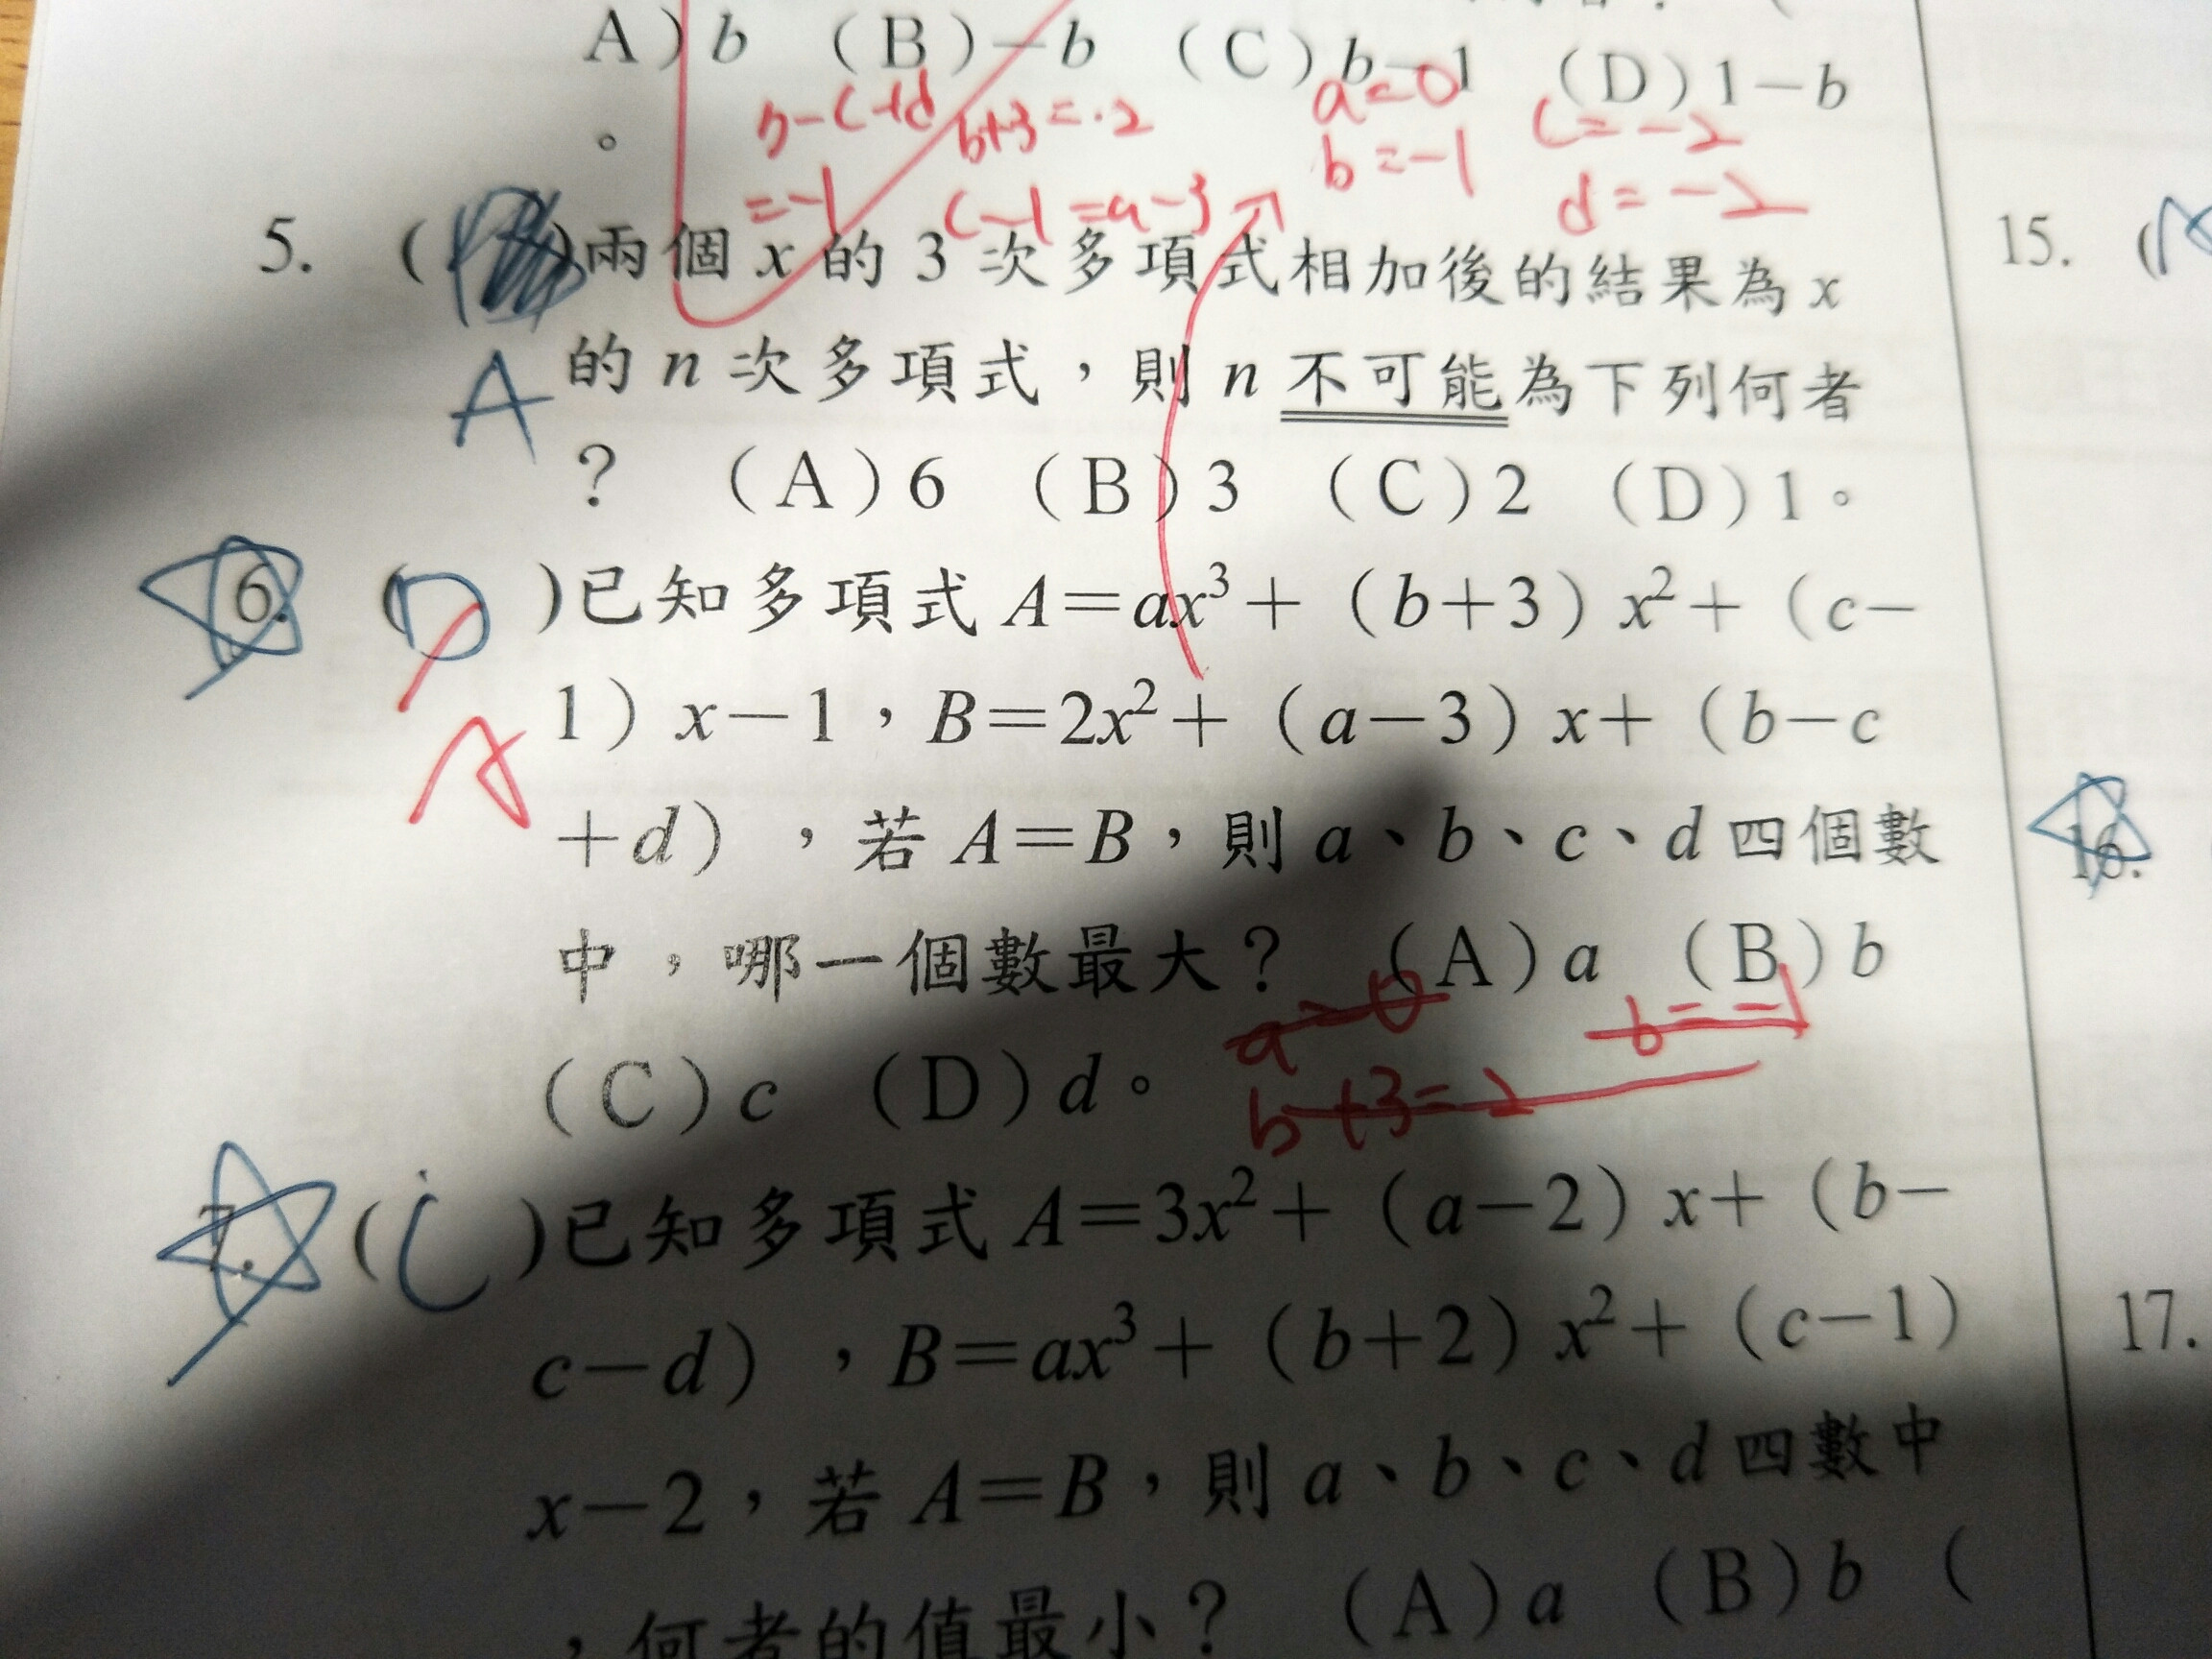 A) b (B)-b (C) b-1 (D) 1-b
。
b-c+d
=-1
b+3=2
c-1=a-3
a=0
b=-1
c=-2
d=-2
5. ( )兩個 x 的 3 次多項式相加後的結果為 x
A
的 n 次多項式，則 n 不可能為下列何者
? (A) 6 (B) 3 (C) 2 (D) 1。
6. (D)已知多項式 A=ax³+(b+3) x²+(c-
A
1) x-1，B=2x²+(a-3) x+(b-c
+d)，若 A=B，則 a、b、c、d 四個數
中，哪一個數最大? (A) a (B) b
a=0
b=-1
(C) c (D) d。
b+3=2
7. (C)已知多項式 A=3x²+(a-2) x+(b-
c-d)，B=ax³+(b+2) x²+(c-1)
x-2，若 A=B，則 a、b、c、d 四數中
，何者的值最小? (A) a (B) b (
15. (
16.
17.